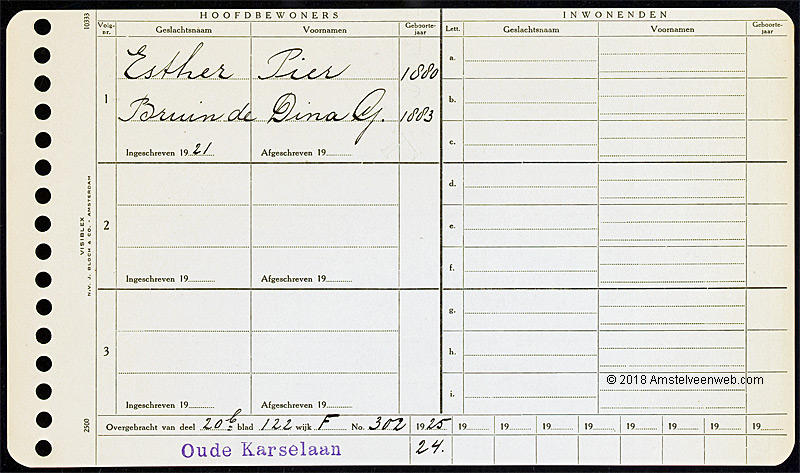 HOOFDBEWONERS INWONENDEN
Volg-nr. Geslachtsnaam Voornamen Geboorte-jaar Lett. Geslachtsnaam Voornamen Geboorte-jaar
10333
Esther Pier 1880 a.
1 Bruin de Dina G. 1883 b.
c.
Ingeschreven 1921 Afgeschreven 19
d.
2 e.
f.
Ingeschreven 19 Afgeschreven 19
g.
3 h.
i.
Ingeschreven 19 Afgeschreven 19
VISIBLEX
N.V. J. BLOCH & CO. - AMSTERDAM
2500
© 2018 Amstelveenweb.com
Overgebracht van deel 20b blad 122 wijk F No. 302 1925 19 19 19 19 19 19 19 19
Oude Karselaan 24.